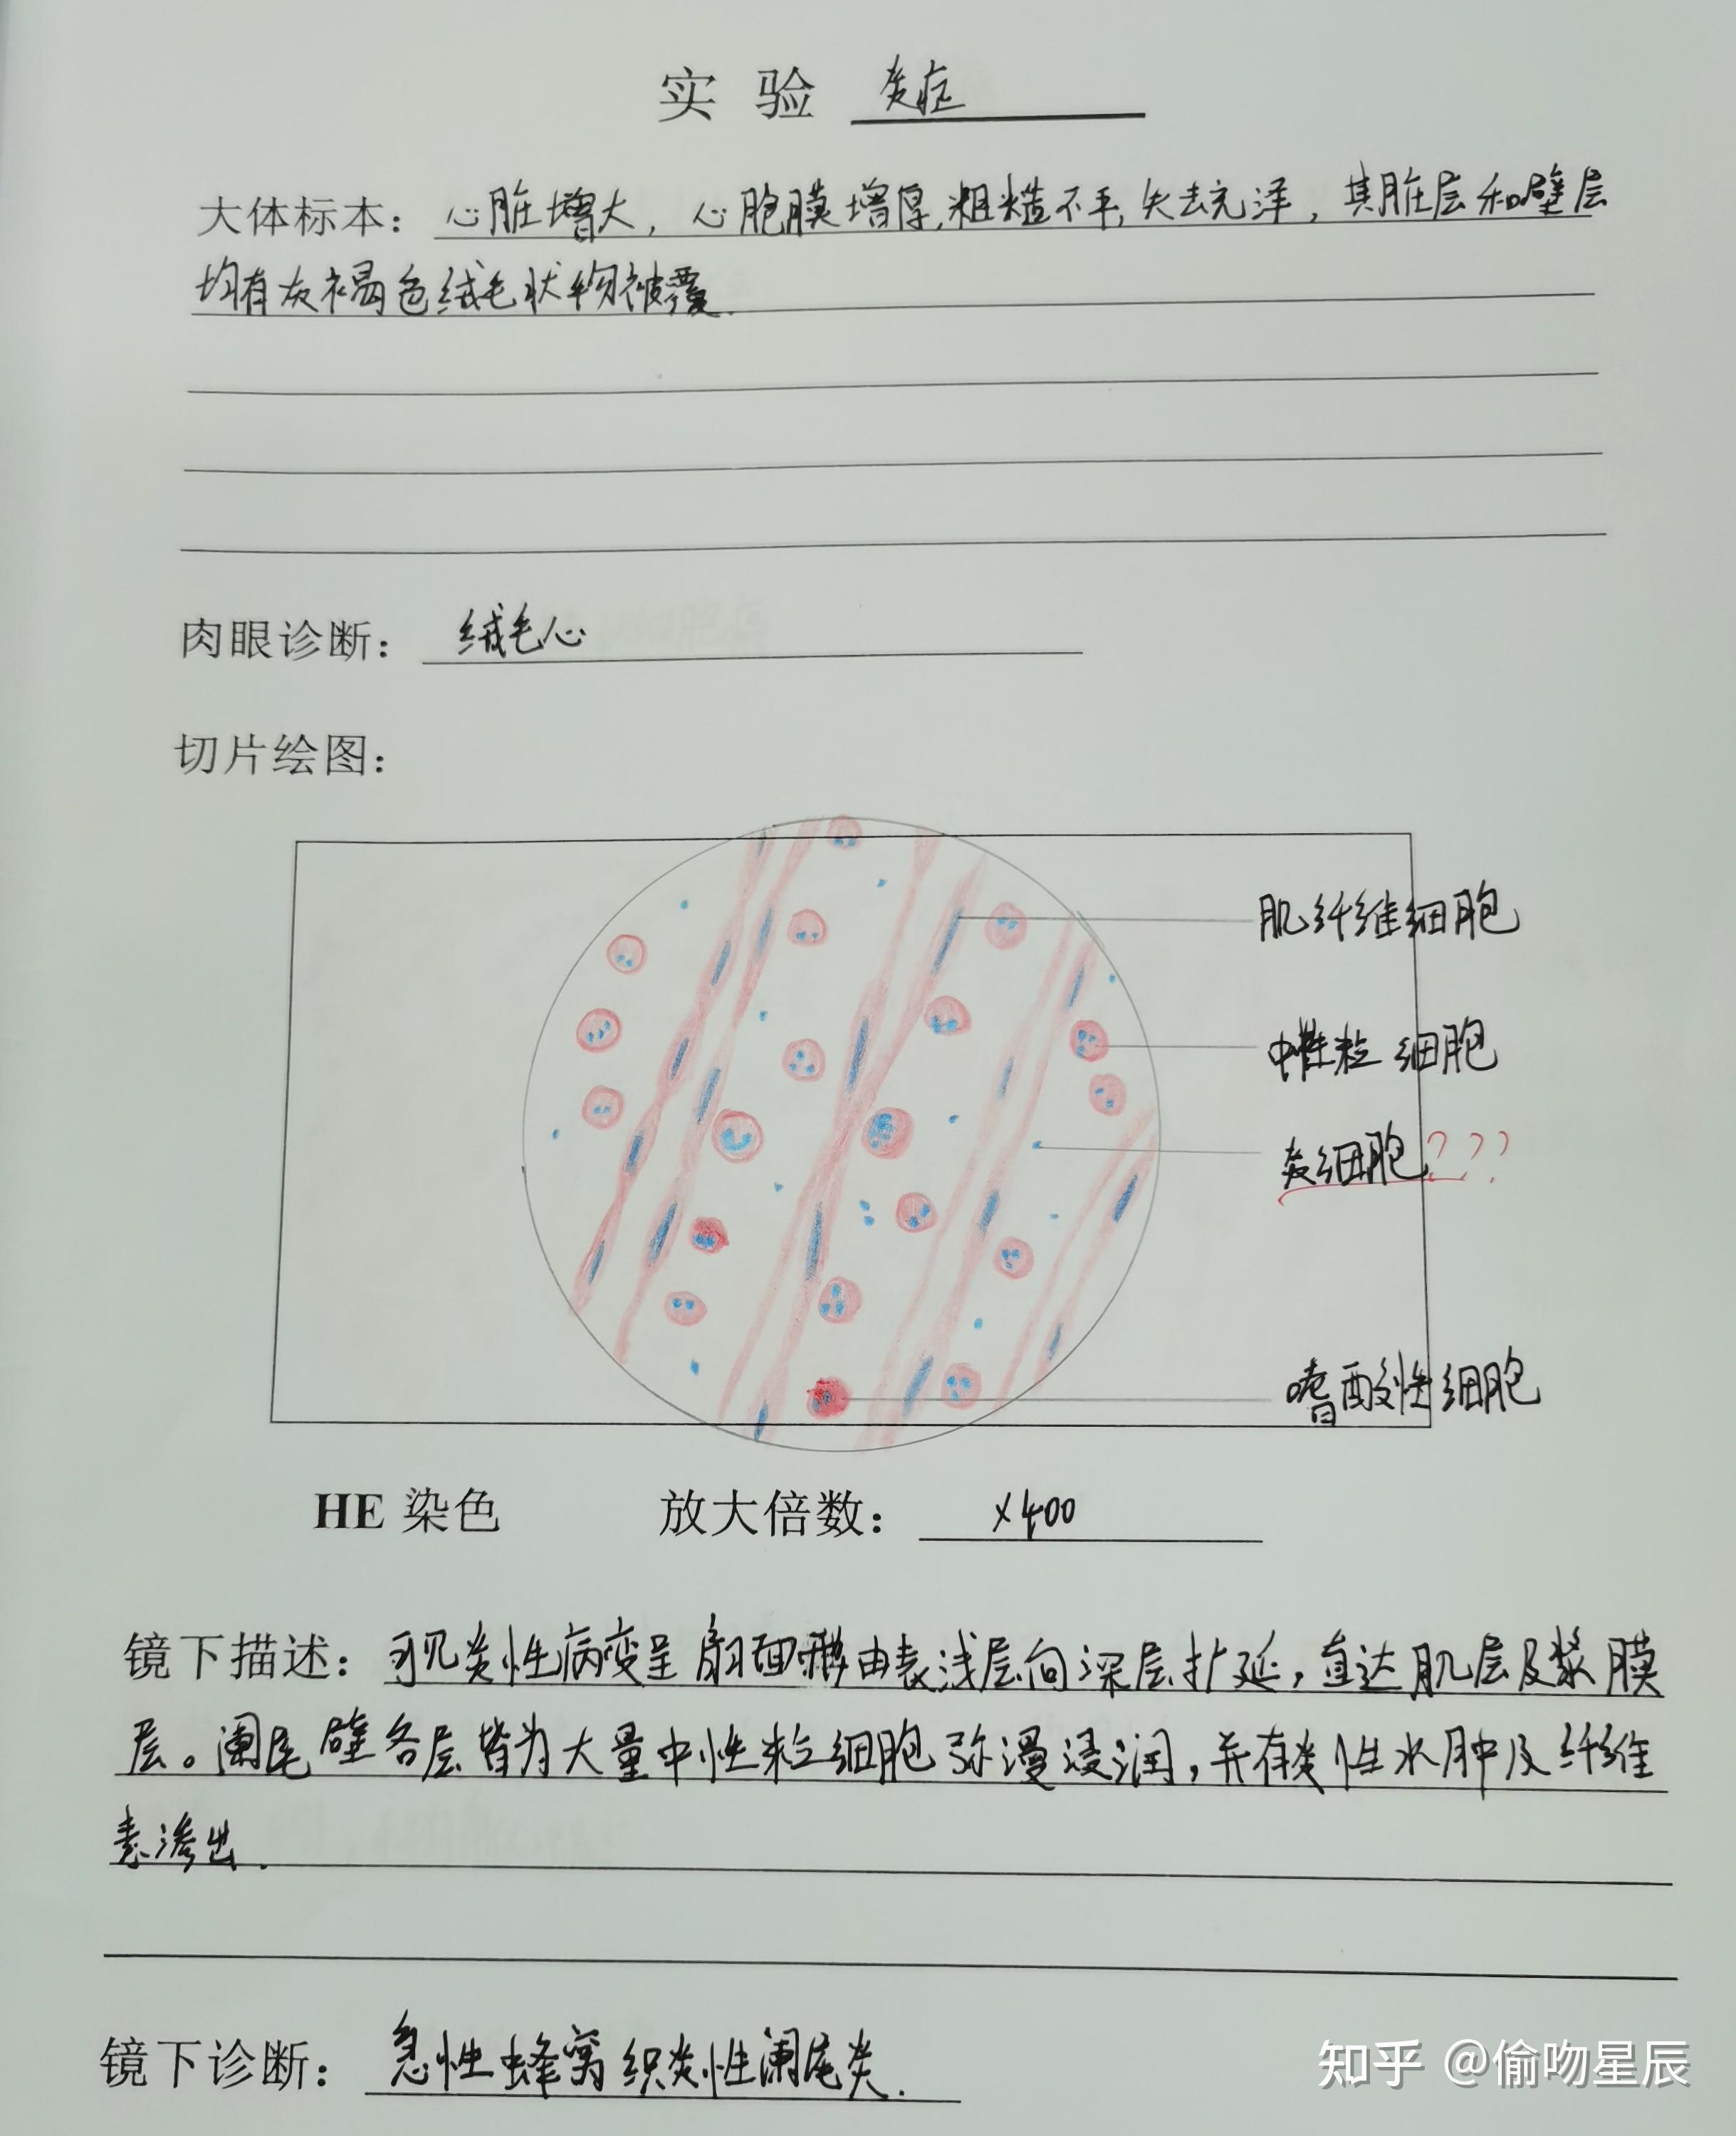 实 验 炎症
大体标本：心脏增大，心胞膜增厚,粗糙不平,失去光泽，其脏层和壁层
均有灰褐色绒毛状物被覆.
肉眼诊断：绒毛心
切片绘图：
肌纤维细胞
中性粒细胞
炎细胞???
嗜酸性细胞
HE 染色 放大倍数：×400
镜下描述：可见炎性病变呈扇面形由表浅层向深层扩延，直达肌层及浆膜
层。阑尾壁各层皆为大量中性粒细胞弥漫浸润，并有炎性水肿及纤维
素渗出.
镜下诊断：急性蜂窝织炎性阑尾炎.
知乎 @偷吻星辰